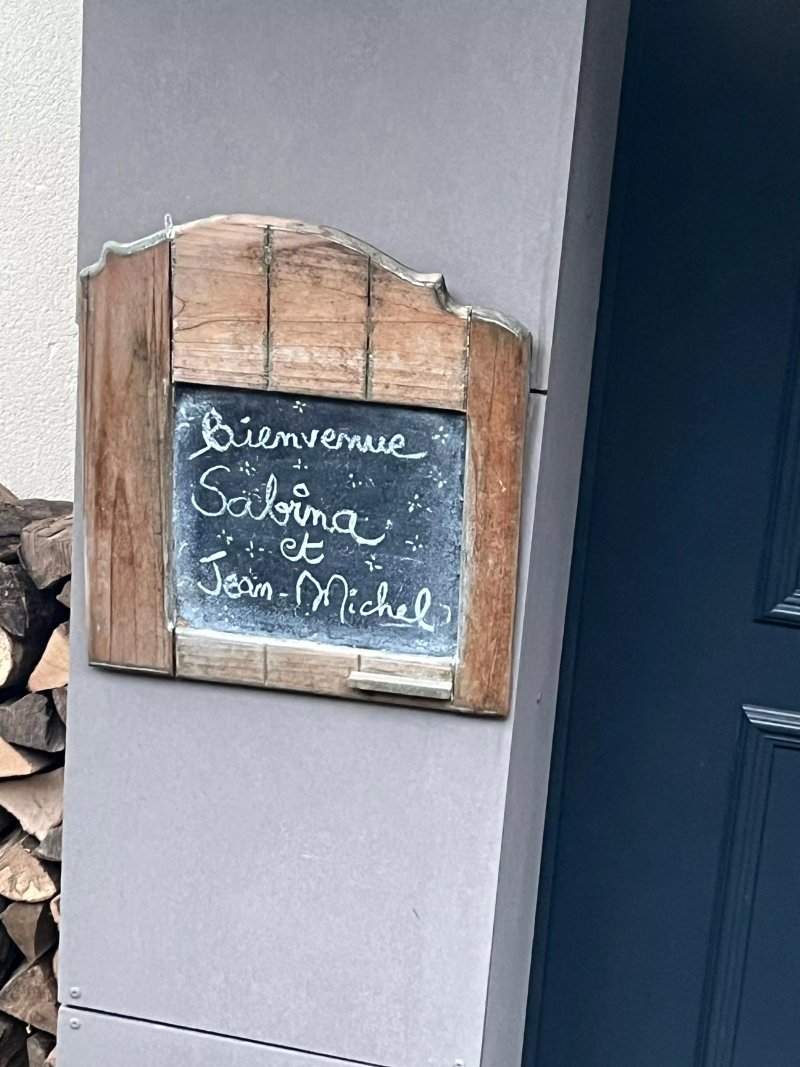 Bienvenue
Sabina
et
Jean-Michel